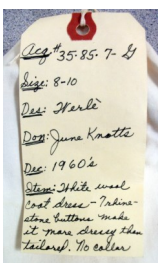 Acq# 35-85-7-G
Size: 8-10
Des: Werlé
Don: June Knotts
Dec: 1960's
Item: White wool
coat dress - 7 rhine-
stone buttons make
it more dressy than
tailored. No collar